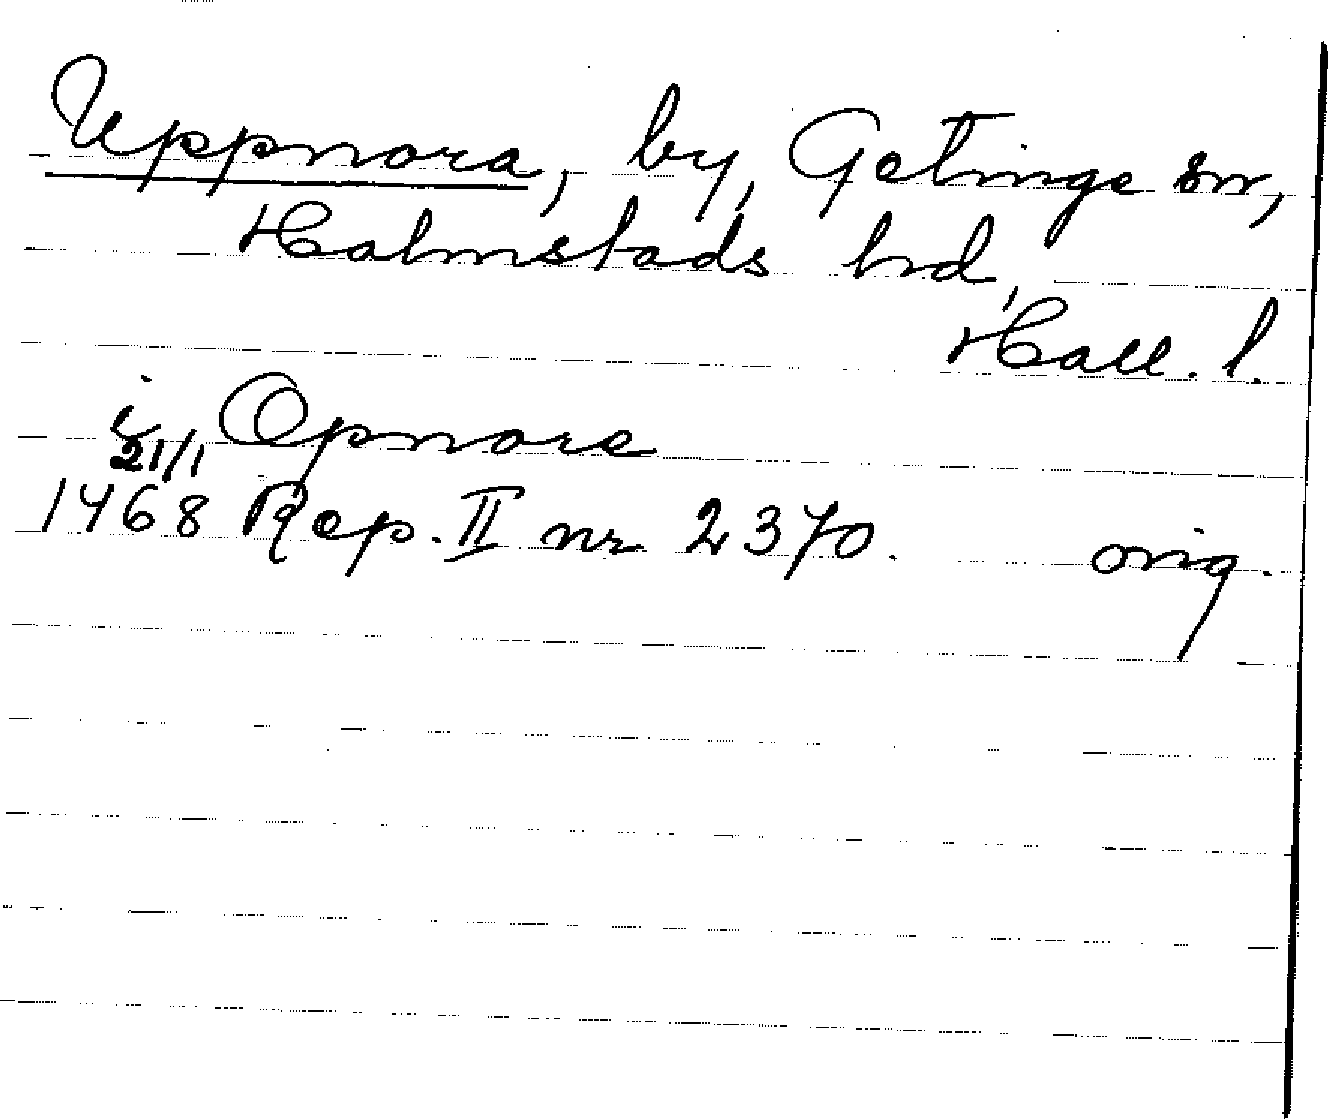 Uppnora, by, Getinge sn,
Halmstads hrd,
Hall. l.
i Opnore
21/1
1468 Rep. II nr 2370. orig.